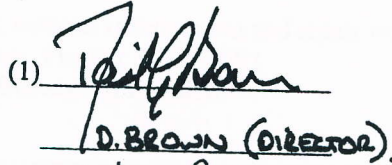 (1)
D. BROWN (DIRECTOR)